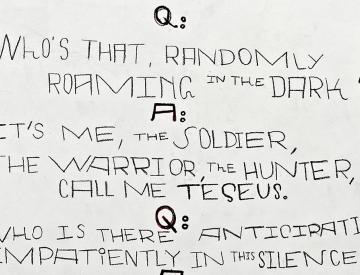 Q:
WHO'S THAT, RANDOMLY
ROAMING IN THE DARK
A:
IT'S ME, THE SOLDIER,
THE WARRIOR, THE HUNTER,
CALL ME TESEUS.
Q:
WHO IS THERE ANTICIPATI
IMPATIENTLY IN THIS SILENCE
A: